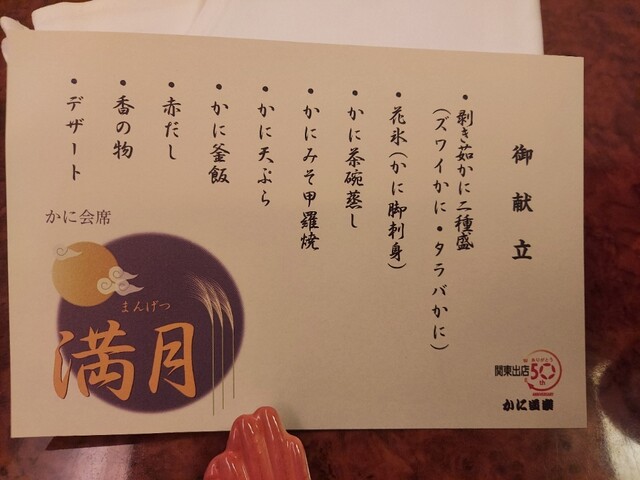 御献立
・剥き茹かに二種盛
(ズワイかに・タラバかに)
・花氷(かに脚刺身)
・かに茶碗蒸し
・かにみそ甲羅焼
・かに天ぷら
・かに釜飯
・赤だし
・香の物
・デザート
かに会席
まんげつ
満月
関東出店
ありがとう
50th